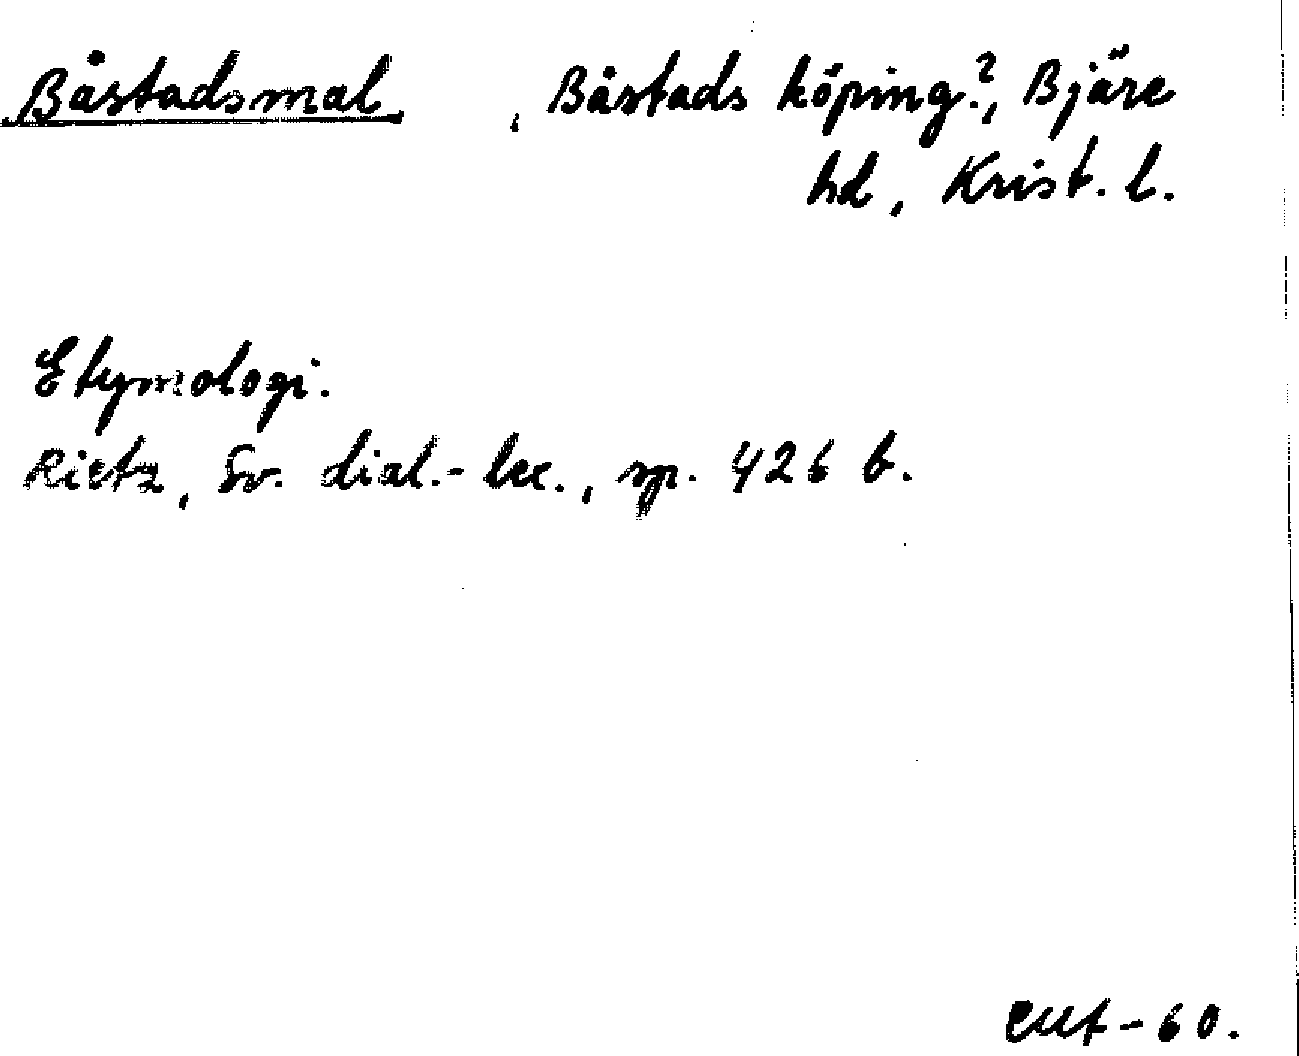 Båstadsmal , Båstads köping?, Bjäre
hd, Krist. l.
Etymologi.
Rietz, Sv. dial.-lex., sp. 426 b.
-60.